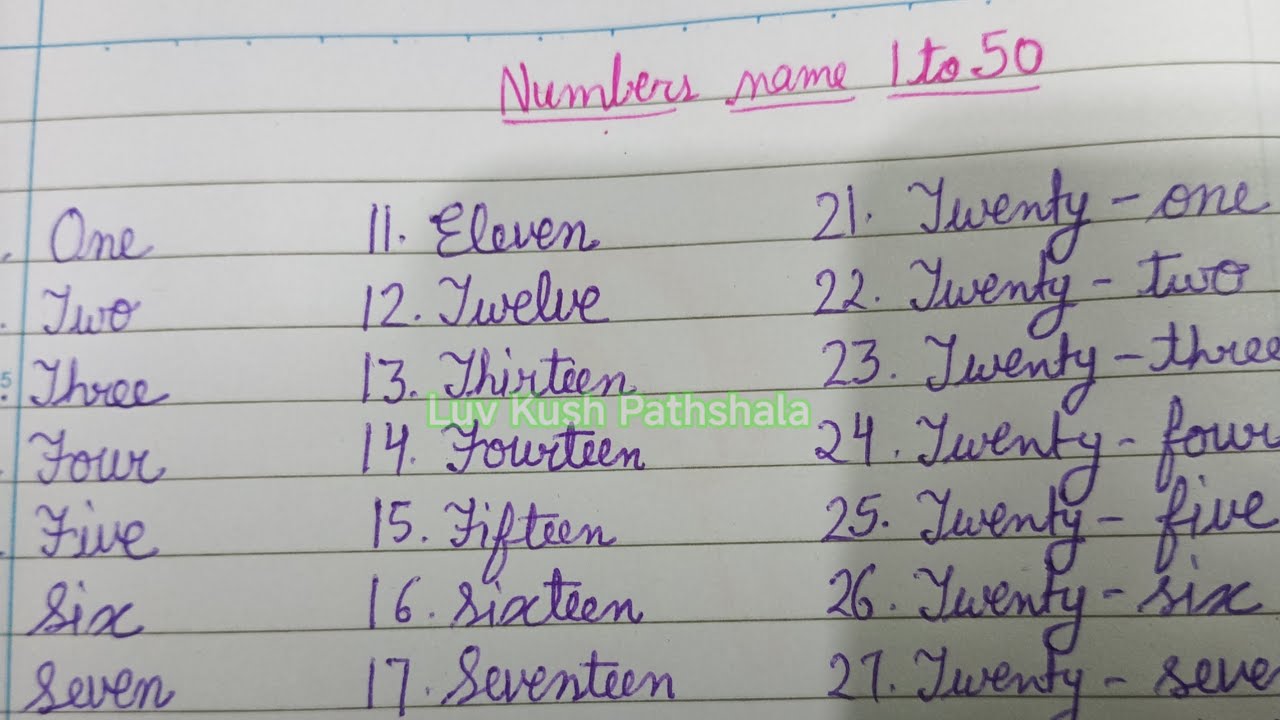 Numbers name 1 to 50
. One 11. Eleven 21. Twenty - one
. Two 12. Twelve 22. Twenty - two
5 : Three 13. Thirteen 23. Twenty - three
Luv Kush Pathshala
. Four 14. Fourteen 24. Twenty - four
. Five 15. Fifteen 25. Twenty - five
Six 16. Sixteen 26. Twenty - six
Seven 17. Seventeen 27. Twenty - seve